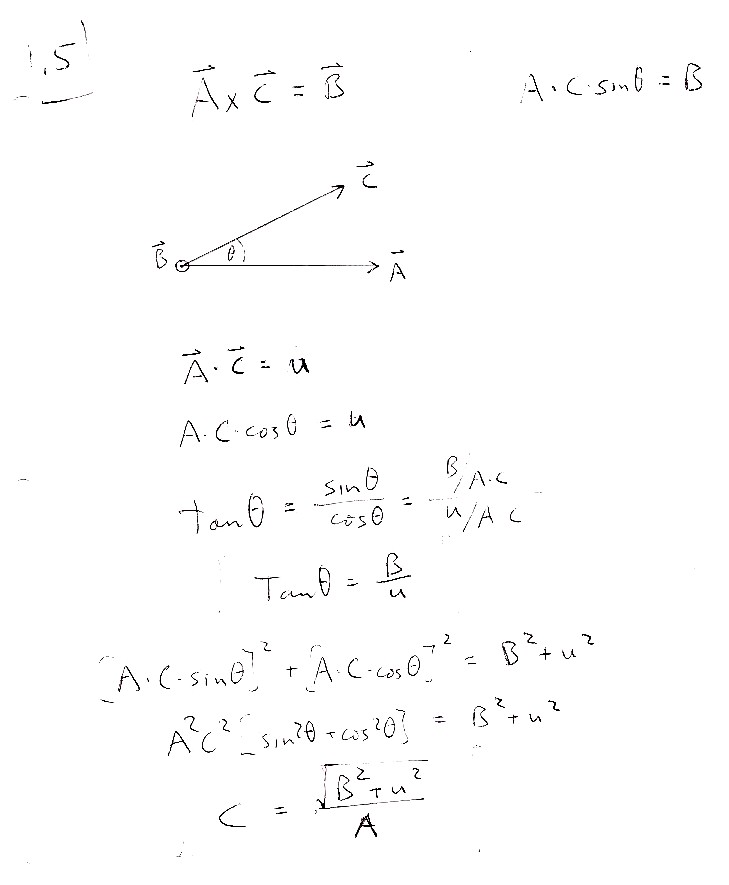 1.5)
A⃗ x C⃗ = B⃗    A·C·sinθ = B
C⃗
B⃗ θ A⃗
A⃗ · C⃗ = u
A·C·cosθ = u
tanθ = sinθ/cosθ = (B/A·C)/(u/A C)
Tanθ = B/u
[A·C·sinθ]² + [A·C·cosθ]² = B² + u²
A²C² [sin²θ + cos²θ] = B² + u²
C = √(B² + u²)/A